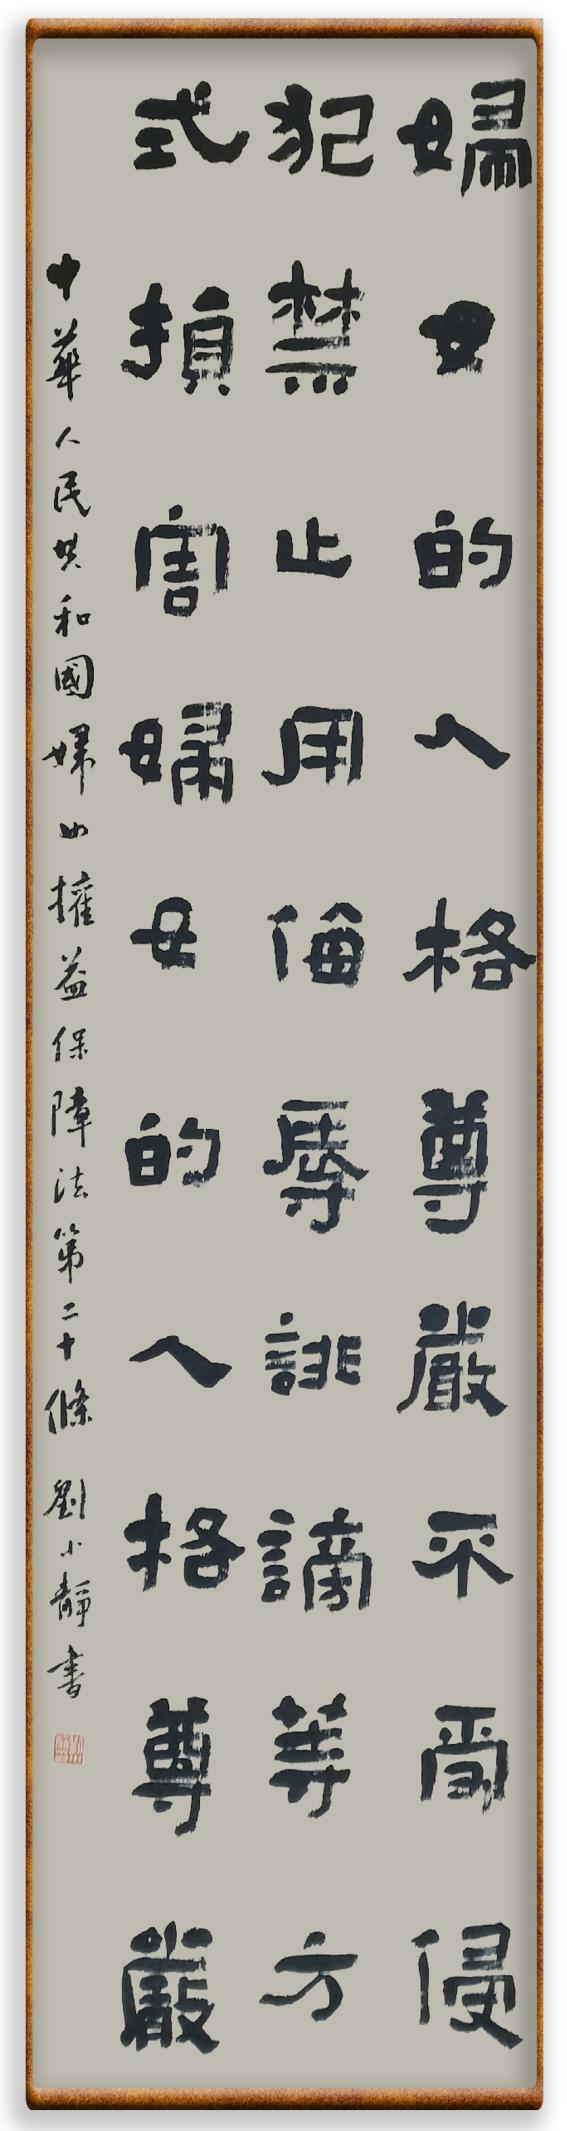 婦女的人格尊嚴不受侵
犯禁止用侮辱誹謗等方
式損害婦女的人格尊嚴
中華人民共和國婦女權益保障法第二十條 劉小靜書